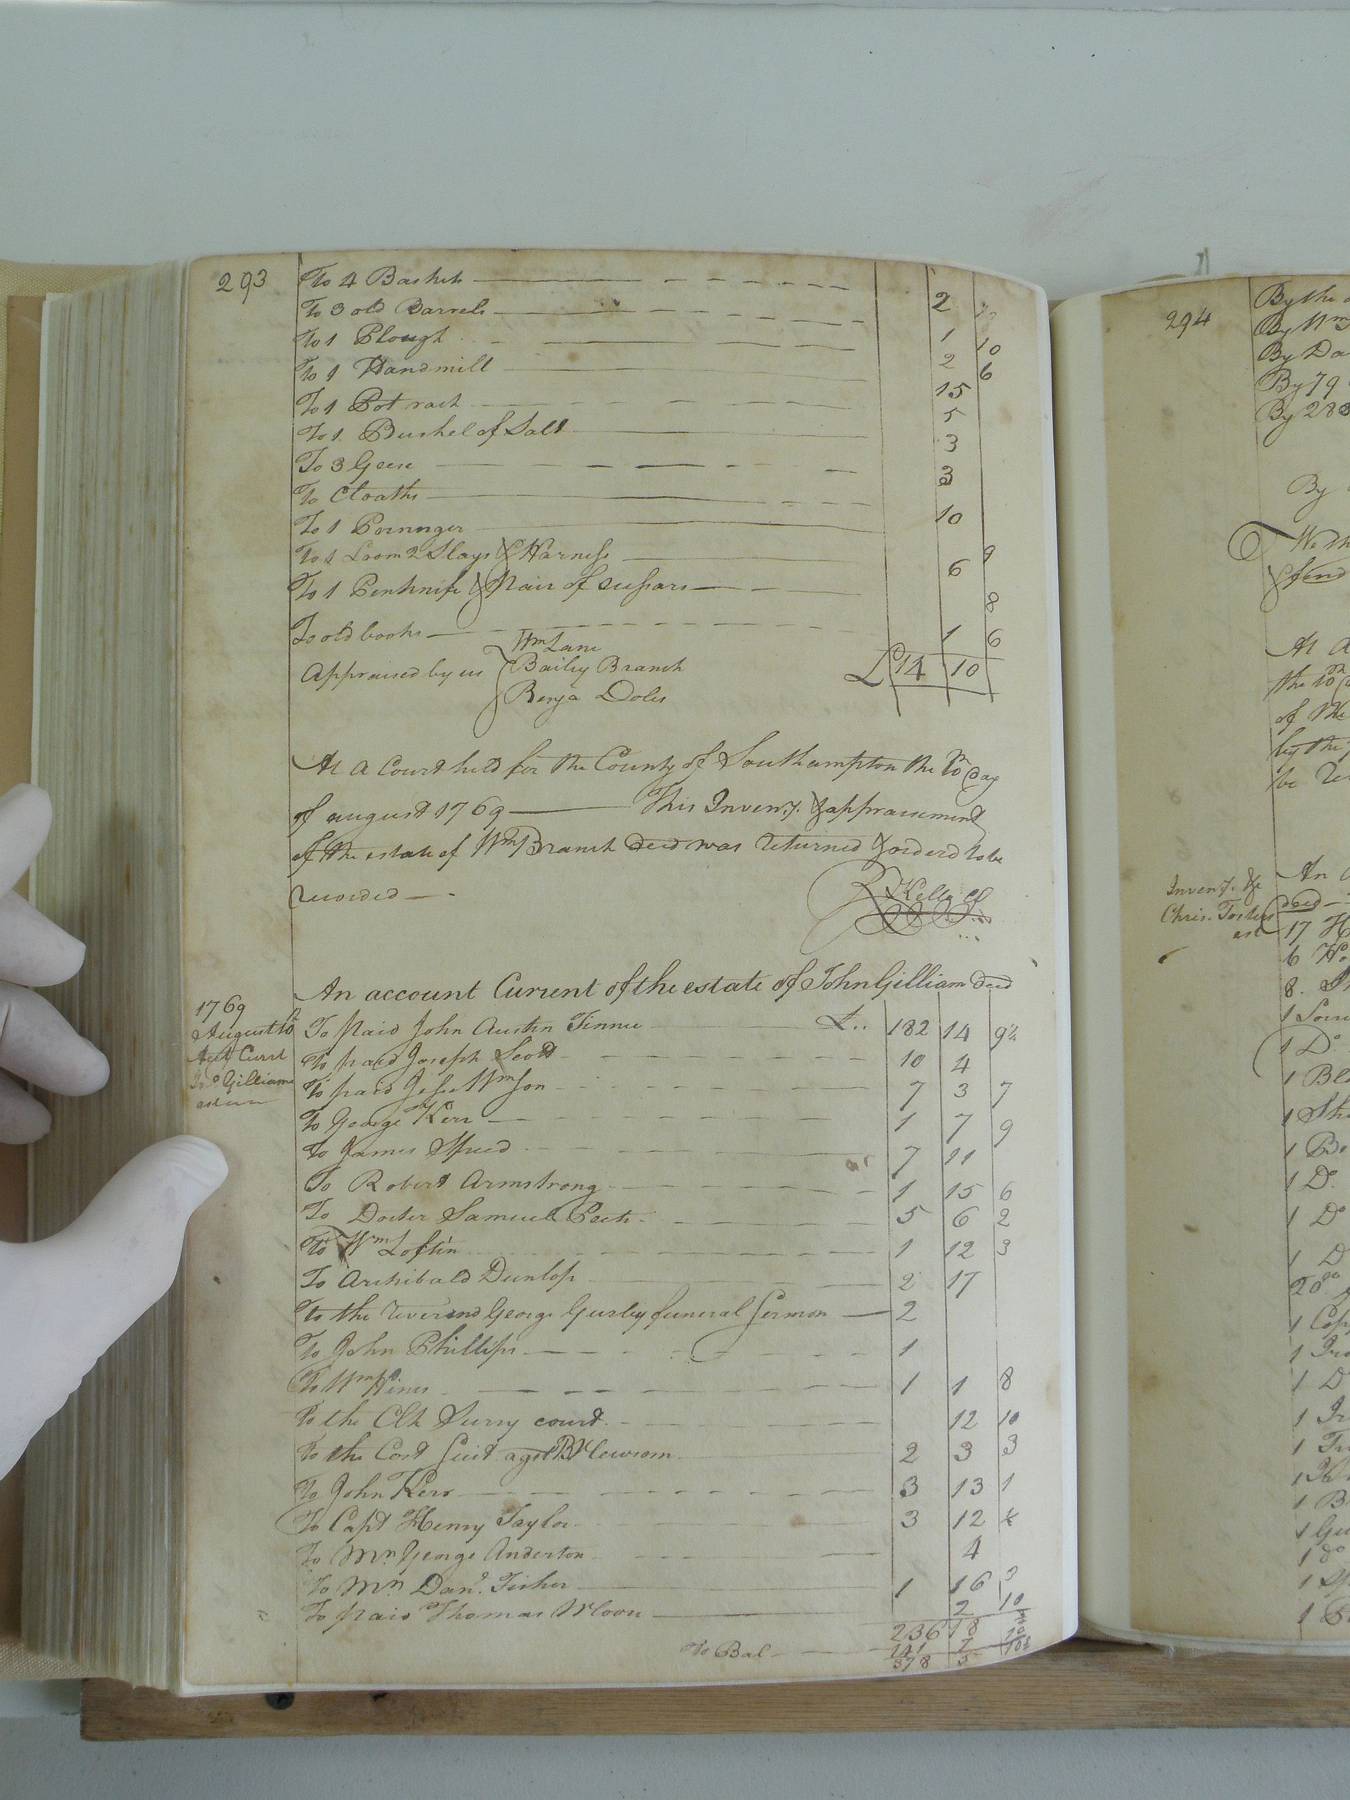 293
To 4 Baskets 2
To 3 old Barrels 1 10
To 1 Plough 2 6
To 1 Handmill 15
To 1 Pot rack 5
To 1 Bushel of Salt 3
To 3 Geese 3
To Cloaths 10
To 1 Poringer 9
To 1 Loom 2 Slays & Harness 6
To 1 Penknife & pair of 8
To old books 1 6
Appraised by us Wm Lane
Baily Branch £14 10
Benja Doles
At a Court held for the County of Southampton the 10 day
of august 1769 This Inveny. & appraisement
of the estate of Wm Branch decd was returned & orderd to be
recorded
R Kello Cl
An account Current of the estate of John Gilliam decd
1769
August 10
Acct Curt
Jno Gilliams
To paid John Austin Finnie £.. 182 14 9½
To paid Joseph Scott 10 4
To paid Jesse Wmson 7 3 7
To George Kerr 1 7 9
To James Speed 7 11
To Robert Armstrong 1 15 6
To Docter Samuel Peete 5 6 2
To Wm Loftin 1 12 3
To Archibald Dunlop 2 17
To the reverend George Gurley funeral Sermon 2
To John Phillips 1
To Wm Hines 1 1 8
To the Clk Surry court 12 10
To the Cost Suit agst B Newsom 2 3 3
To John Kerr 3 13 1
To Capt Henry Taylor 3 12
To Mr. George Anderton 4
To Mr. Danl. Fisher 1 16 3
To paid Thomas 2 10
236 18
To Bal 141 7
378 5
294
By the
By Wm
By Da
By 79
By 283
By
We th
find
At a
the 10
of
by the
be
Inveny. &c
Chris. Fosters
est
An a
decd
17 H
6 Ho
8.
1
1 Do.
1
1
1 Bo
1 Do.
1 Do
1 D
20
1 Cop
1 Iro
1 D
1 Ir
1
1
1 B
1 Gu
1 do
1 Sp
1